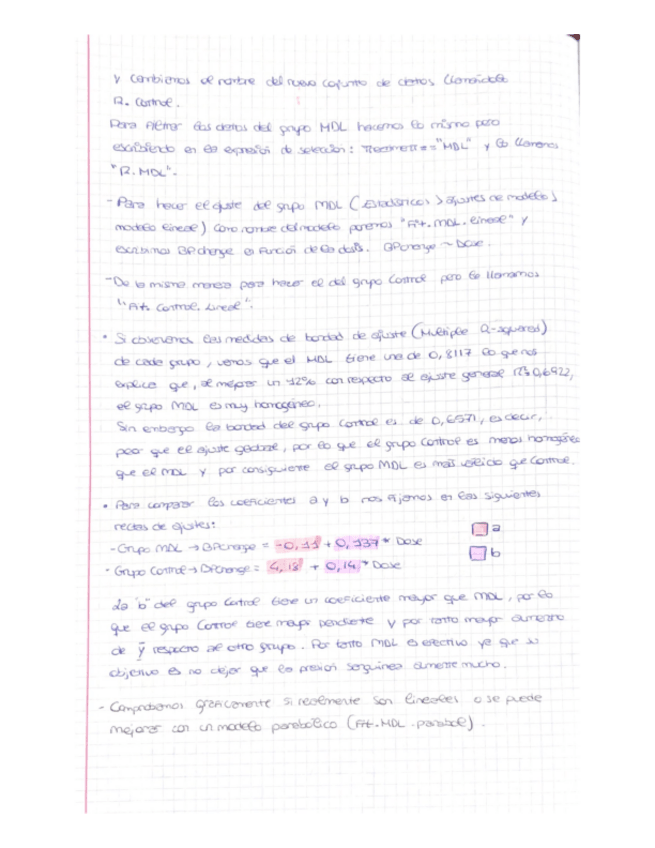 y cambiamos el nombre del nuevo conjunto de datos llamándolo
R. Control.
Para filtrar los datos del grupo MDL hacemos lo mismo pero
escribiendo en la expresión de selección: Treatment == "MDL" y lo llamamos
"R. MDL".
- Para hacer el ajuste del grupo MDL (Estadísticos > ajustes de modelo >
modelo lineal) como nombre del modelo ponemos "Fit. MDL. lineal" y
escribimos BPchange en función de la dosis. BPchange ~ Dose.
- De la misma manera para hacer el del grupo Control pero lo llamamos
"Fit. Control. Lineal".
• Si observamos las medidas de bondad de ajuste (Multiple R-squared)
de cada grupo, vemos que el MDL tiene una de 0,8117 lo que nos
explica que, al mejorar un 12% con respecto al ajuste general 0,6922,
el grupo MDL es muy homogéneo.
Sin embargo la bondad del grupo Control es de 0,6571, es decir,
peor que el ajuste global, por lo que el grupo Control es menos homogéneo
que el MDL y por consiguiente el grupo MDL es más válido que Control.
• Para comparar los coeficientes a y b nos fijamos en las siguientes
rectas de ajustes:
a
- Grupo MDL → BPchange = -0,11 + 0,137 * Dose
b
- Grupo Control → BPchange = + 0,14 * Dose
La "b" del grupo Control tiene un coeficiente mayor que MDL, por lo
que el grupo Control tiene mayor pendiente y por tanto mayor aumento
de ȳ respecto al otro grupo. Por tanto MDL es efectivo ya que su
objetivo es no dejar que la presión sanguínea aumente mucho.
- Comprobamos gráficamente si realmente son lineales o se puede
mejorar con un modelo parabólico (Fit. MDL. parabol).